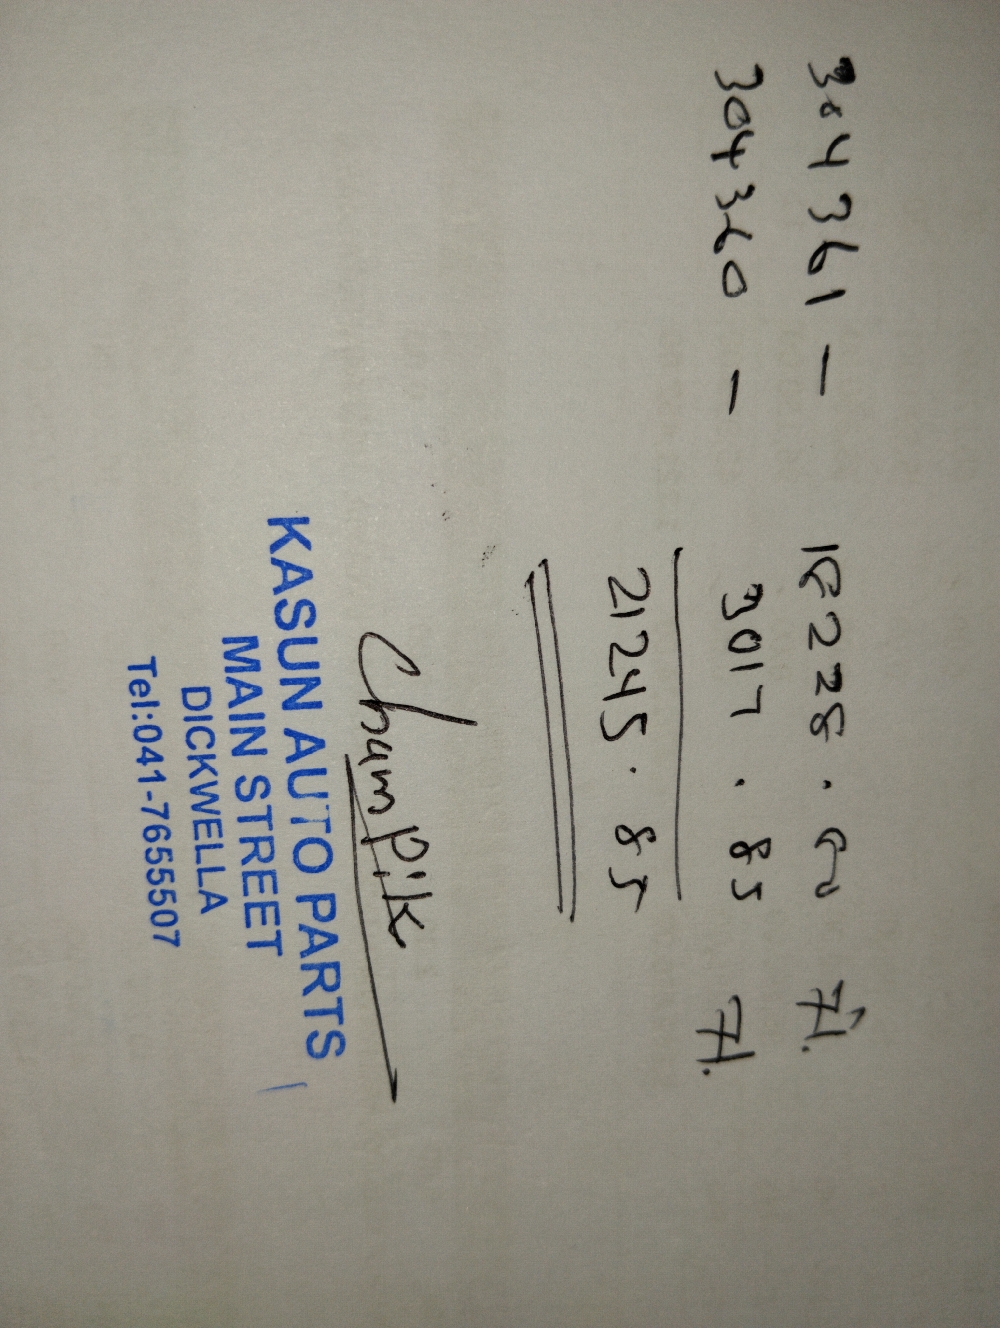 304361 - 18228.00
304360 - 3017.85
21245.85
Champik
KASUN AUTO PARTS
MAIN STREET
DICKWELLA
Tel:041-7655507